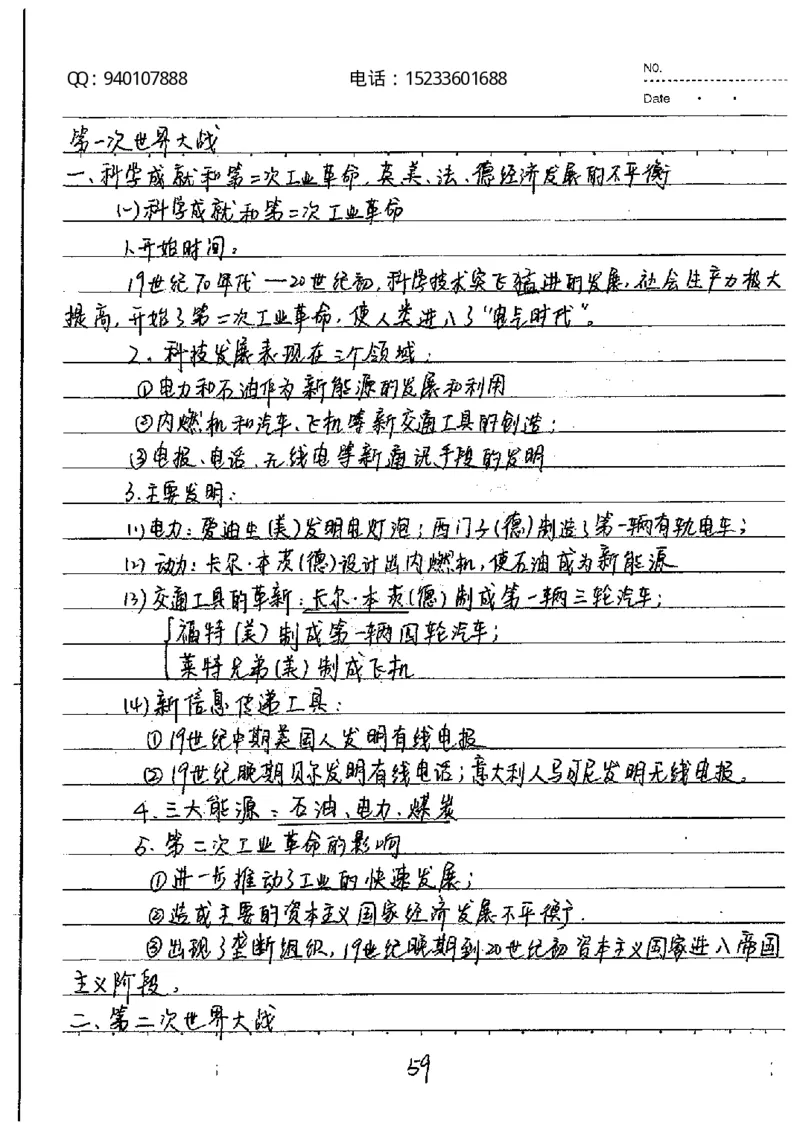 QQ：940107888 电话：15233601688 NO.
Date · ·
第一次世界大战
一、科学成就和第二次工业革命，英、美、法、德经济发展的不平衡
(一)科学成就和第二次工业革命
1.开始时间：
19世纪70年代—20世纪初，科学技术突飞猛进的发展，社会生产力极大
提高，开始了第二次工业革命，使人类进入了“电气时代”。
2、科技发展表现在三个领域：
①电力和石油作为新能源的发展和利用
②内燃机和汽车、飞机等新交通工具的创造；
③电报、电话、无线电等新通讯手段的发明
3.主要发明：
(1)电力：爱迪生(美)发明电灯泡；西门子(德)制造了第一辆有轨电车；
(2)动力：卡尔·本茨(德)设计出内燃机，使石油成为新能源
(3)交通工具的革新：卡尔·本茨(德)制成第一辆三轮汽车；
福特(美)制成第一辆四轮汽车；
莱特兄弟(美)制成飞机
(4)新信息传递工具：
①19世纪中期美国人发明有线电报
②19世纪晚期贝尔发明有线电话；意大利人马可尼发明无线电报。
4、三大能源：石油、电力、煤炭
5、第二次工业革命的影响
①进一步推动了工业的快速发展；
②造成主要的资本主义国家经济发展不平衡.
③出现了垄断组织，19世纪晚期到20世纪初资本主义国家进入帝国
主义阶段。
二、第二次世界大战
59